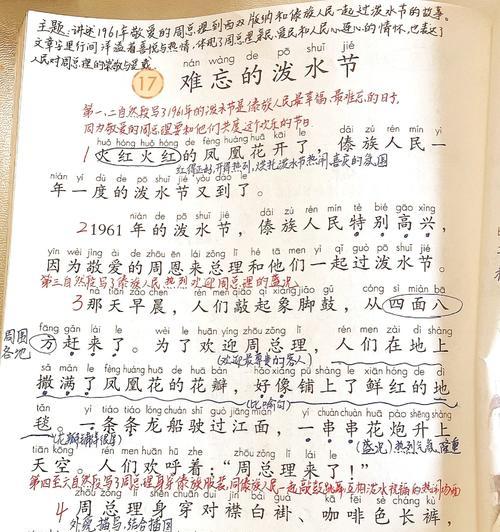 主题:讲述1961年敬爱的周总理到西双版纳和傣族人民一起过泼水节的故事。
文章字里行间洋溢着喜悦与热情,体现了周总理亲民、爱民和人民心连心的情怀,也表达了
人民对周总理的崇敬与爱戴
nán wàng de pō shuǐ jié
17 难忘的泼水节
第一、二自然段写了1961年的泼水节是傣族人民最幸福、最难忘的日子,
因为敬爱的周总理要和他们共度这个欢乐的节日
huǒ hóng huǒ hóng de fèng huáng huā kāi le dǎi zú rén mín yì
1火红火红的凤凰花开了,傣族人民一
红得正好,开得热烈,烘托泼水节热闹喜庆的氛围
nián yí dù de pō shuǐ jié yòu dào le
年一度的泼水节又到了。
nián de pō shuǐ jié dǎi zú rén mín tè bié gāo xìng
2 1961年的泼水节,傣族人民特别高兴,
yīn wèi jìng ài de zhōu ēn lái zǒng lǐ hé tā men yì qǐ guò pō shuǐ jié
因为敬爱的周恩来总理和他们一起过泼水节。
第三自然段写了傣族人民热烈欢迎周总理的盛况
nà tiān zǎo chén rén men qiāo qǐ xiàng jiǎo gǔ cóng sì miàn bā
3那天早晨,人们敲起象脚鼓,从四面八
周围各地
fāng gǎn lái le wèi le huān yíng zhōu zǒng lǐ rén men zài dì shàng
方赶来了。为了欢迎周总理,人们在地上
(欢迎最尊贵的客人)
sǎ mǎn le fèng huáng huā de huā bàn hǎo xiàng pū shàng le xiān hóng de dì
撒满了凤凰花的花瓣,好像铺上了鲜红的地
(比喻句)
tǎn yì tiáo tiáo lóng chuán shǐ guò jiāng miàn yí chuàn chuàn huā pào shēng shàng
毯。一条条龙船驶过江面,一串串花炮升上
(花瓣铺得很厚)
(盛况)热烈气氛,隆重
tiān kōng rén men huān hū zhe zhōu zǒng lǐ lái le
天空。人们欢呼着:“周总理来了!”
第四至六自然段写了周总理身穿傣族服装,同傣族人民一起敲鼓跳舞、互相泼水祝福的热闹场面
4周总理身穿对襟白褂、咖啡色长裤,
外貌描写,结合插图